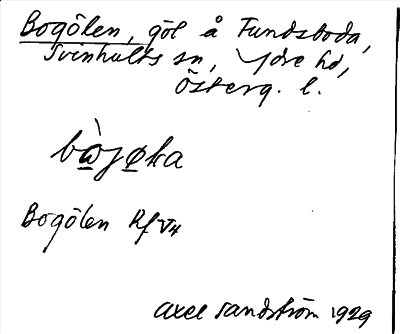 Bogölen, göl å Fundsboda,
Svinhults sn, Ydre hd,
Österg. l.
Bogölen Rf V4
Axel Sandström 1929